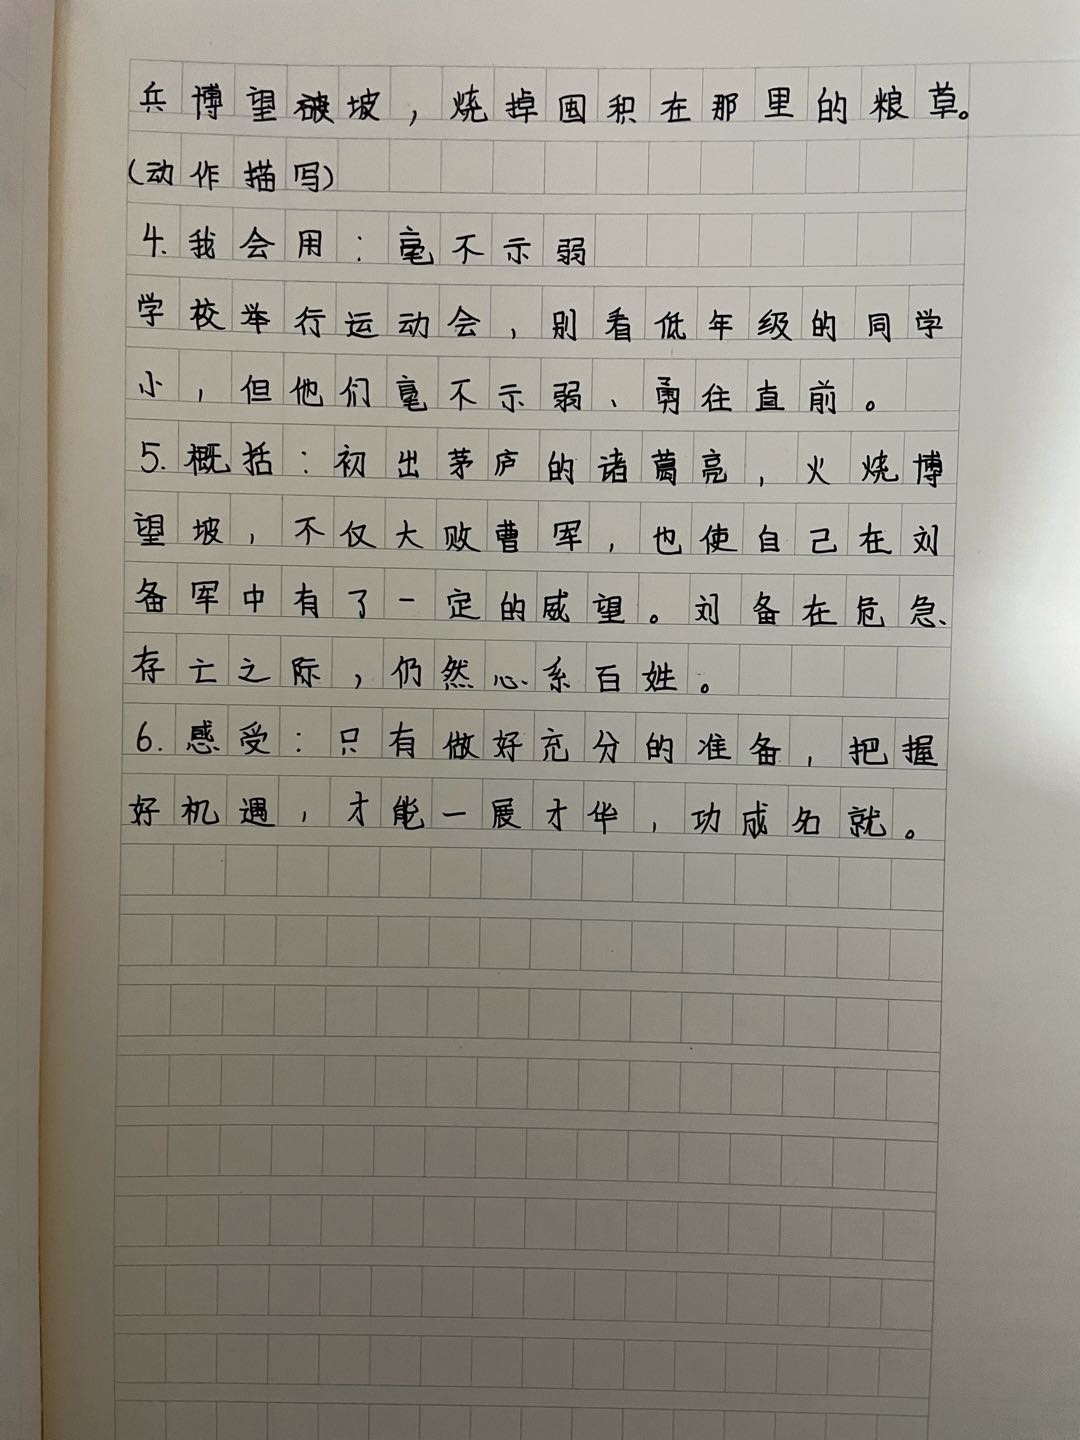 兵博望坡，烧掉囤积在那里的粮草。
（动作描写）
4.我会用：毫不示弱
学校举行运动会，别看低年级的同学
小，但他们毫不示弱、勇往直前。
5.概括：初出茅庐的诸葛亮，火烧博
望坡，不仅大败曹军，也使自己在刘
备军中有了一定的威望。刘备在危急
存亡之际，仍然心系百姓。
6.感受：只有做好充分的准备，把握
好机遇，才能一展才华，功成名就。